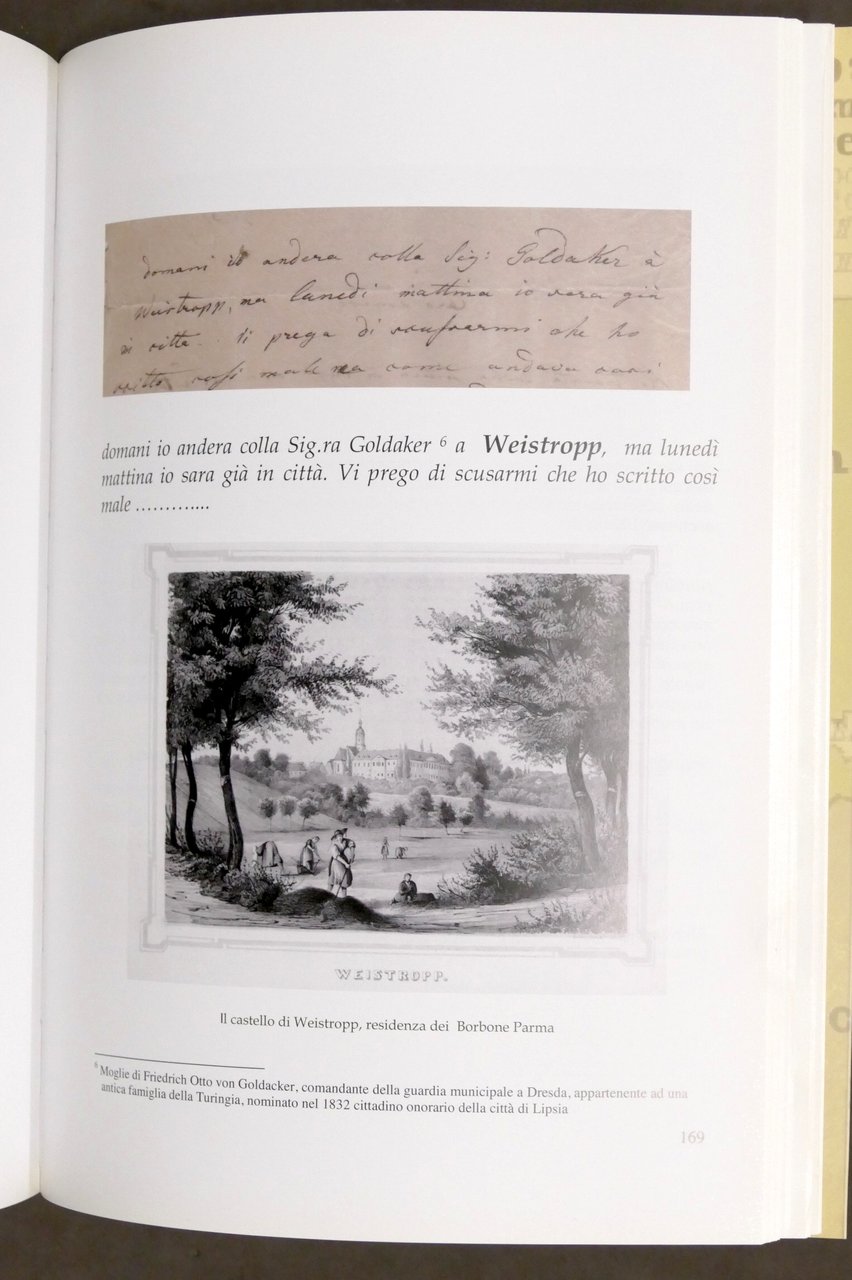 domani io andera colla Sig: Goldaker à
Weistropp, ma lunedi mattina io sara già
in citta. Vi prego di scusarmi che ho
scritto cosi male ma come andava cosi
domani io andera colla Sig.ra Goldaker 6 a Weistropp, ma lunedì
mattina io sara già in città. Vi prego di scusarmi che ho scritto così
male ............
WEISTROPP.
Il castello di Weistropp, residenza dei Borbone Parma
6 Moglie di Friedrich Otto von Goldacker, comandante della guardia municipale a Dresda, appartenente ad una
antica famiglia della Turingia, nominato nel 1832 cittadino onorario della città di Lipsia
169